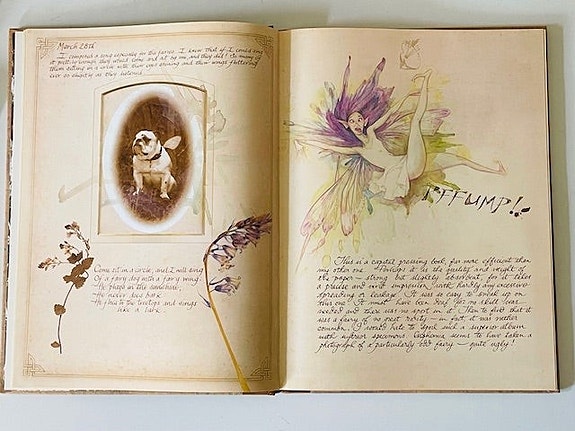 March 28th
I composed a song especially for the fairies. I knew that if I could sing
it prettily enough they would come and sit by me and they did! So many of
them sitting in a circle with their eyes shining and their wings fluttering
ever so slightly as they listened.
Come sit in a circle, and I will sing
Of a fairy dog with a fairy wing.
He plays in the sunshine,
He never does bark
He hunts the treetops and sings
like a lark.
PFFUMP!
This is a capital pressing book, far more efficient than
my other one. Perhaps it is the quality and weight of
the paper - strong but slightly absorbent, for it takes
a precise and vivid impression, with hardly any excessive
spreading or leakage. It was so easy to smash up on
this one. It must have been deaf for no skill was
needed and there was no sport in it. Then to find that it
was a fairy of no great rarity - in fact, it was rather
common. I would hate to spoil such a superior album
with inferior specimens. Euphemia seems to have taken a
photograph of a particularly odd fairy - quite ugly!